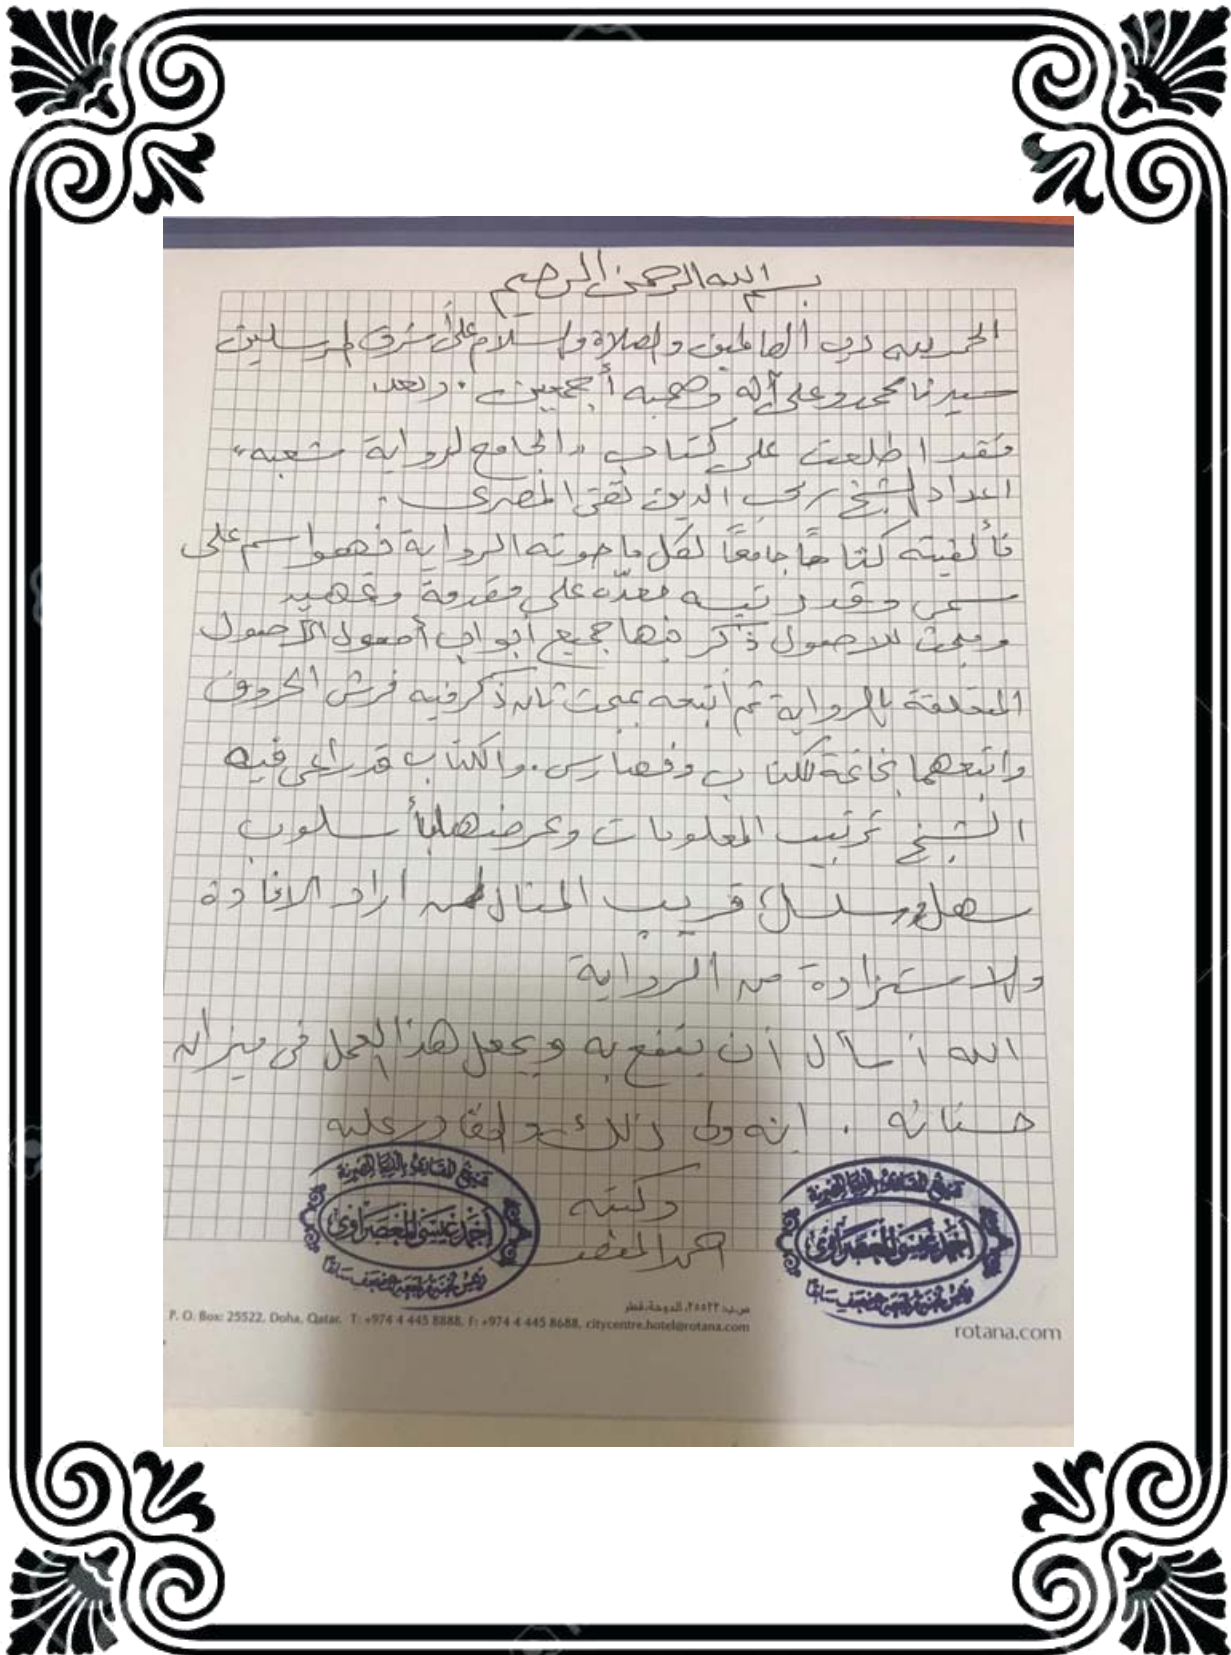 بسم الله الرحمن الرحيم
الحمد لله رب العالمين والصلاة والسلام على أشرف المرسلين
سيدنا محمد وعلى آله وصحبه أجمعين . وبعد
فقد اطلعت على كتاب "الجامع لرواية شعبه"
اعداد الشيخ / محب الدين تقى المصرى .
فألفيته كتابًا جامعًا لكل ما حوته الرواية فهو اسم على
مسمى وقد رتبه معدّه على مقدمة وتمهيد
ومبحث للاصول ذكر فيها جميع أبواب أصول الأصول
المتعلقة بالرواية ثم أتبعه بمبحث ثان ذكر فيه فرش الحروف
واتبعهما بخاتمة للكتاب وفهارس . والكتاب قد راعى فيه
الشيخ ترتيب المعلومات وعرضها بأسلوب
سهل وسلس قريب المنال لمن اراد الافادة
والاستزادة من الرواية
الله أسأل أن ينفع به ويجعل هذا العمل فى ميزان
حسناته . إنه ولى ذلك والقادر عليه
وكتبه
احمد
شيخ المقارئ بالديار المصرية
أحمد عيسى المعصراوي
رئيس لجنة مراجعة المصحف سابقا
شيخ المقارئ بالديار المصرية
أحمد عيسى المعصراوي
رئيس لجنة مراجعة المصحف سابقا
ص.ب: ٢٥٥٢٢، الدوحة، قطر
P. O. Box: 25522, Doha, Qatar. T: +974 4 445 8888, F: +974 4 445 8688, citycentre.hotel@rotana.com
rotana.com